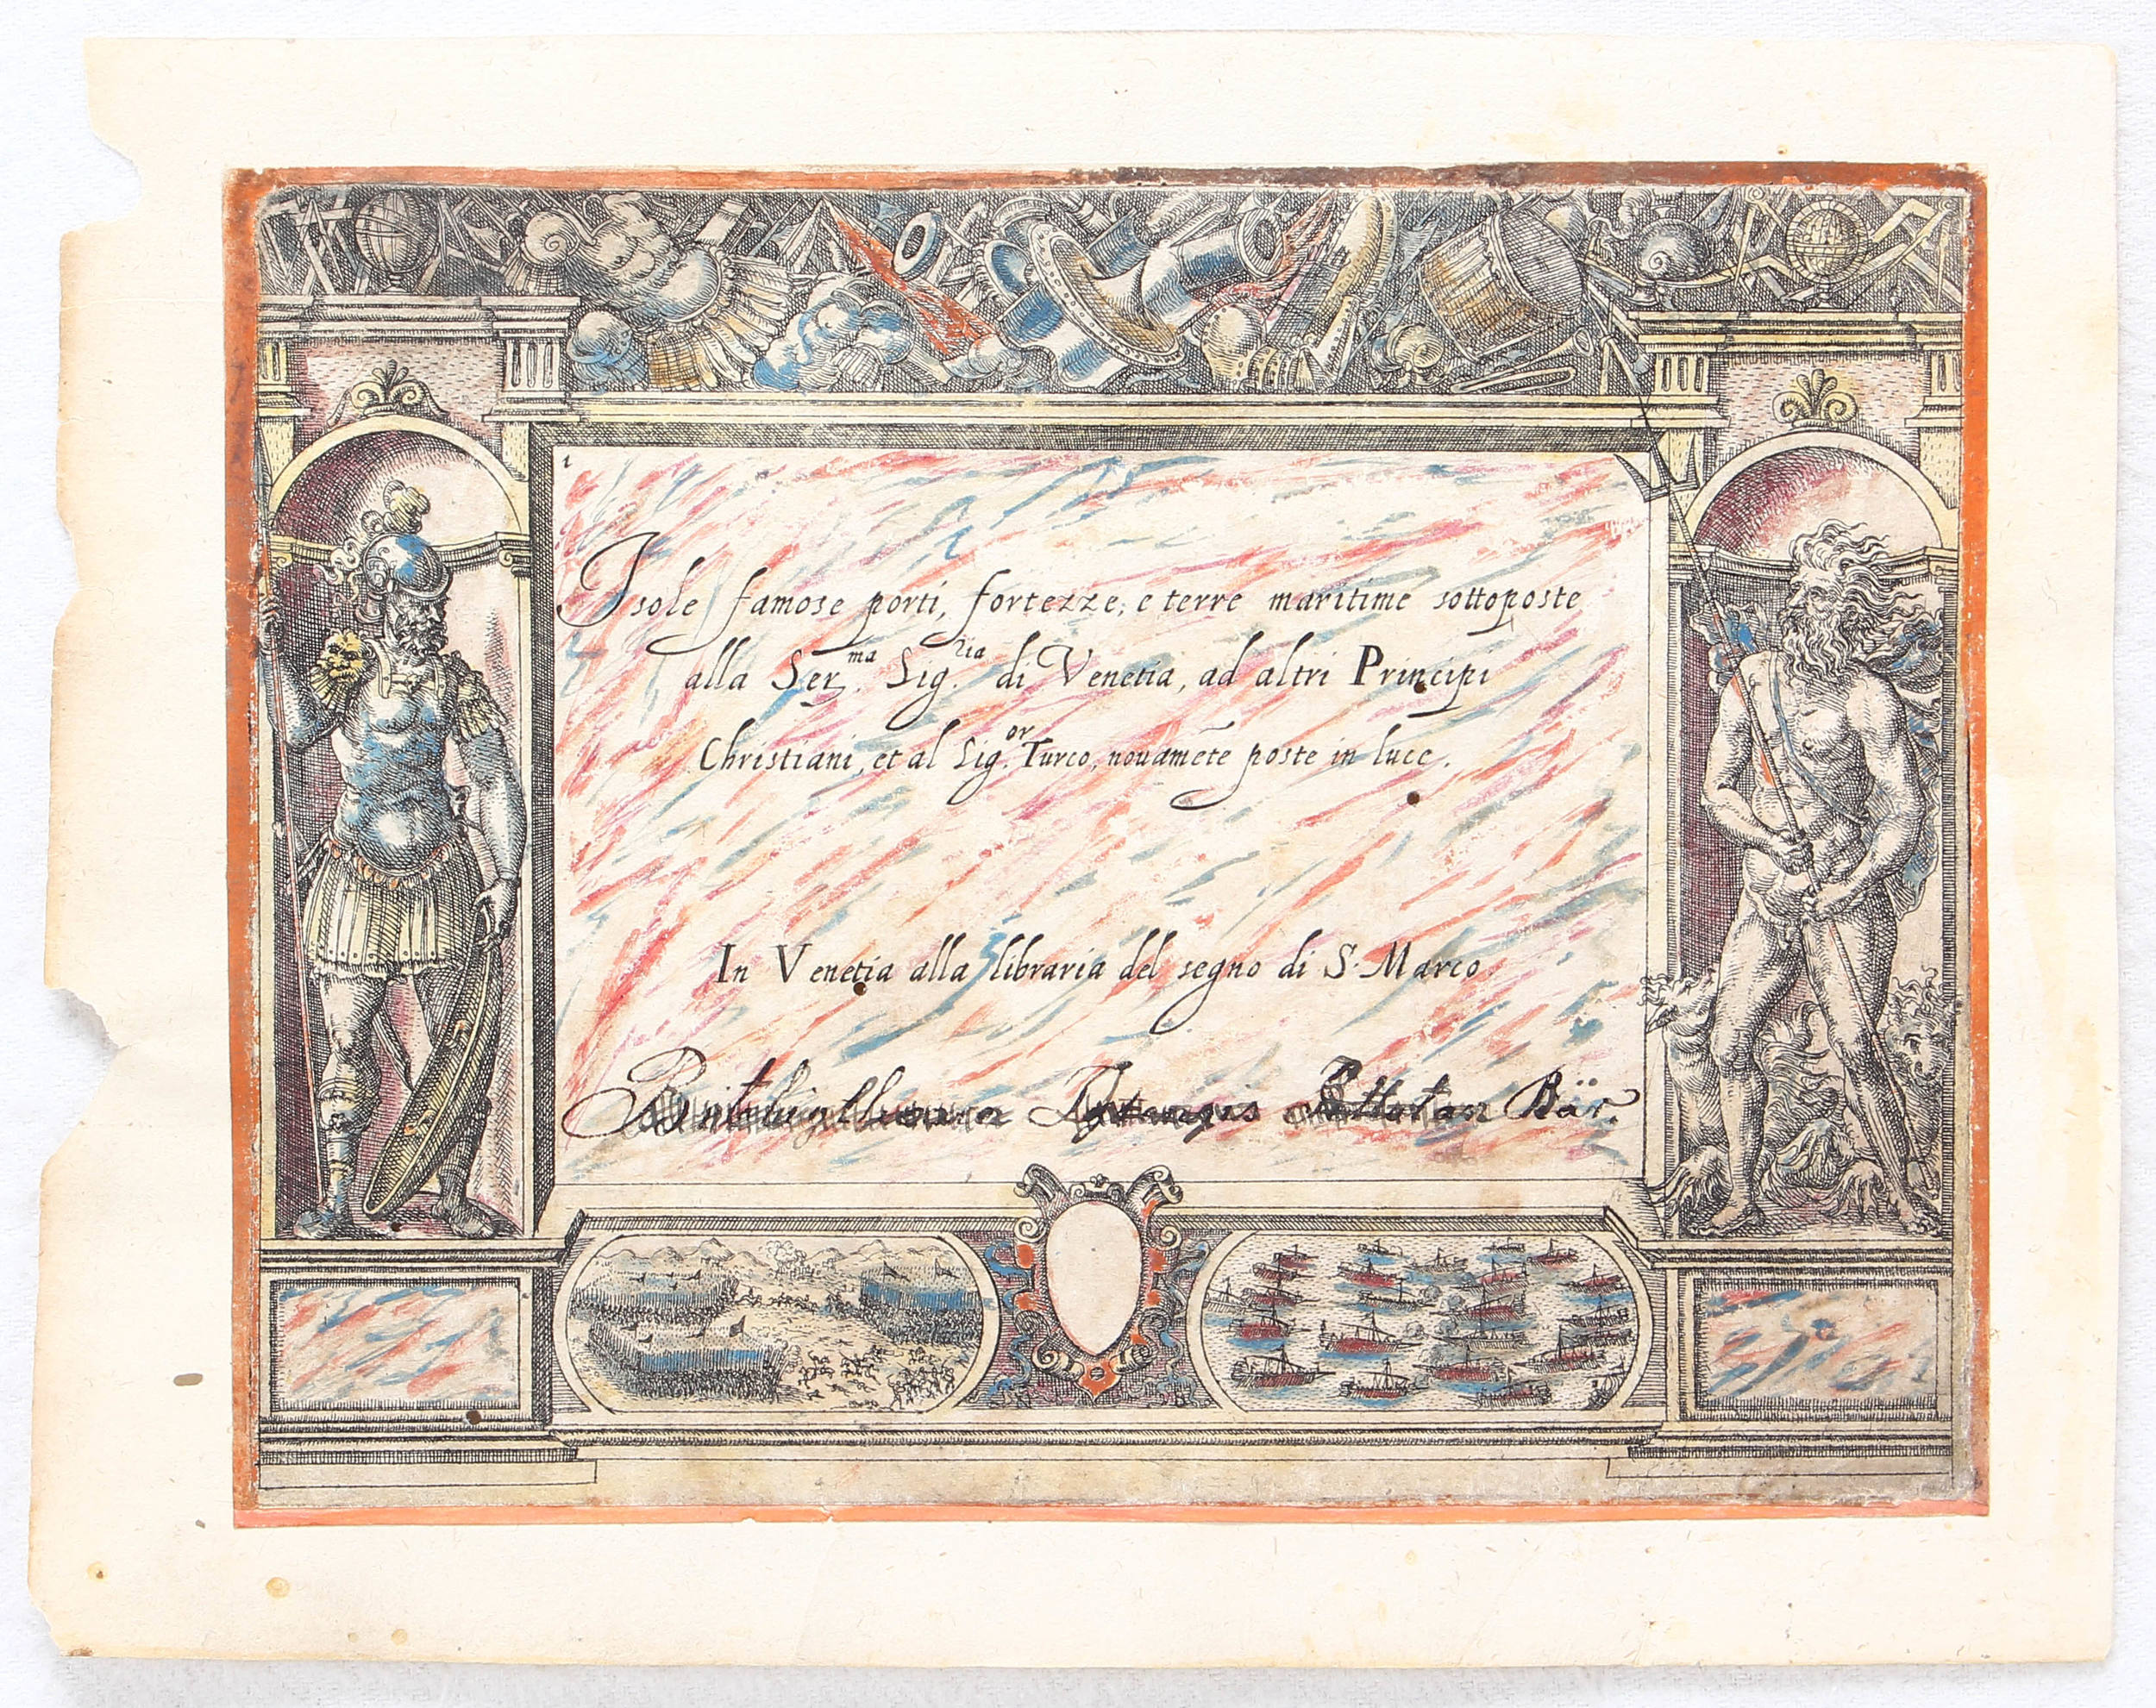 1
Isole famose porti, fortezze, e terre maritime sottoposte
alla Ser.ma Sig.ria di Venetia, ad altri Principi
Christiani, et al Sig.or Turco, nouamẽte poste in luce.
In Venetia alla libraria del segno di S. Marco
Bär.